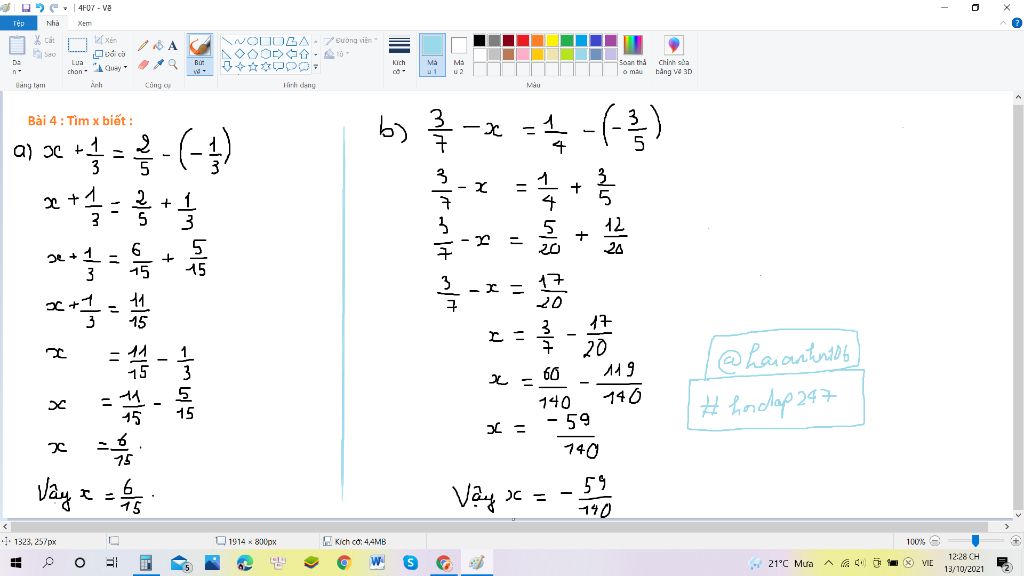 4F07 - Vẽ
Tệp Nhà Xem
Cắt
Sao
Dán
Bảng tạm
Xén
Đổi cỡ
Quay
Lựa chọn
Ảnh
Công cụ
Bút vẽ
Đường viền
Tô
Hình dạng
Kích cỡ
Màu 1
Màu 2
Màu
Soạn thảo màu
Chỉnh sửa bằng Vẽ 3D
Bài 4 : Tìm x biết :
a) x + 1/3 = 2/5 - (-1/3)
x + 1/3 = 2/5 + 1/3
x + 1/3 = 6/15 + 5/15
x + 1/3 = 11/15
x = 11/15 - 1/3
x = 11/15 - 5/15
x = 6/15 .
Vậy x = 6/15 .
b) 3/7 - x = 1/4 - (-3/5)
3/7 - x = 1/4 + 3/5
3/7 - x = 5/20 + 12/20
3/7 - x = 17/20
x = 3/7 - 17/20
x = 60/140 - 119/140
x = -59/140
Vậy x = -59/140
# hoidap247
1323, 257px
1914 × 800px
Kích cỡ: 4,4MB
100%
21°C Mưa
VIE
12:28 CH
13/10/2021